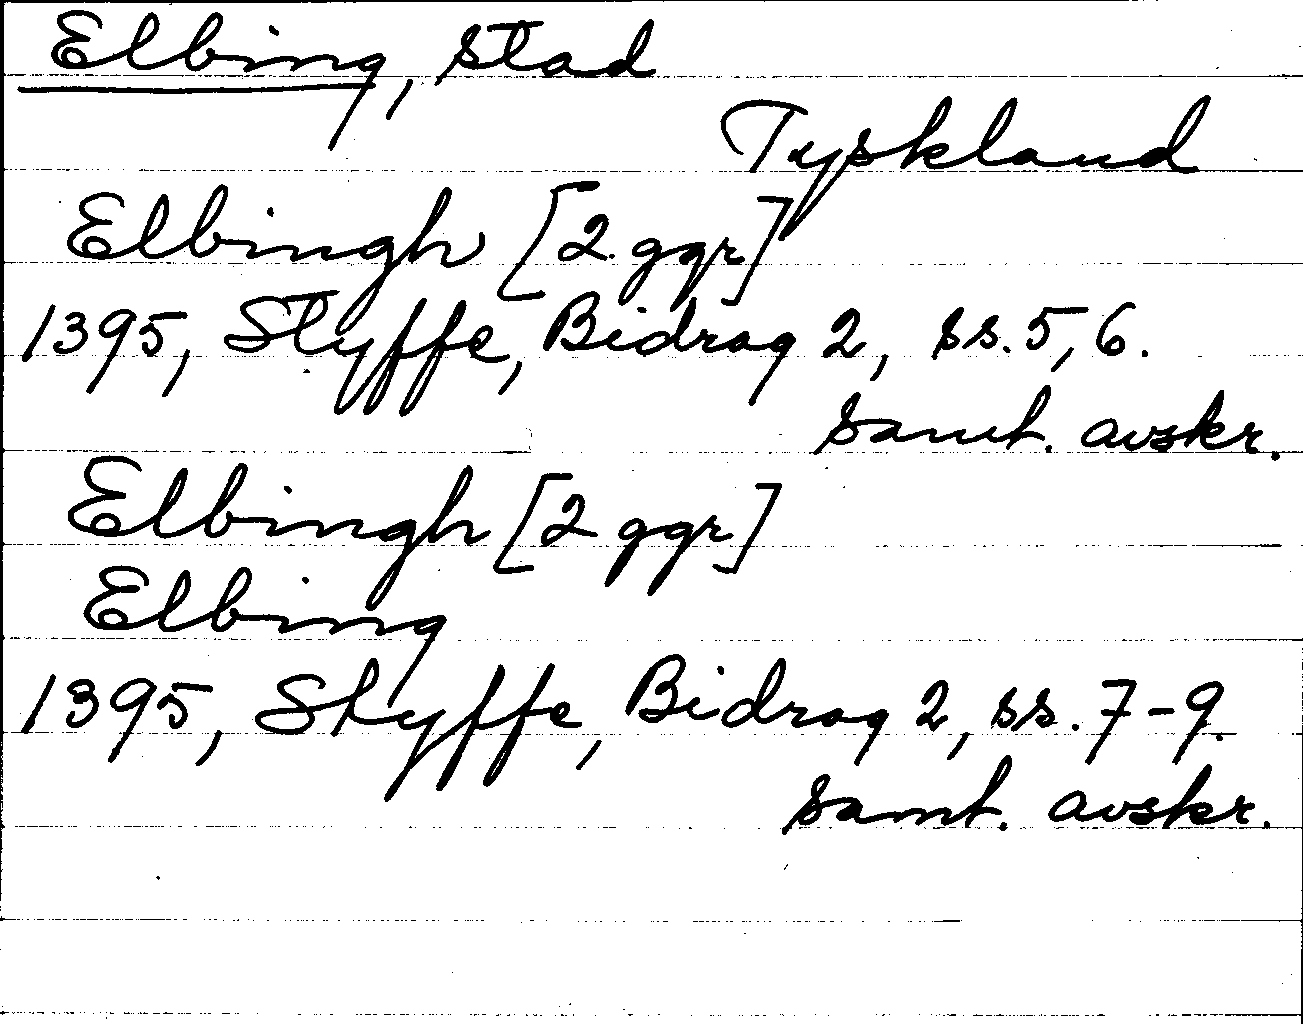 Elbing, stad
Tyskland
Elbingh [2 ggr]
1395, Styffe, Bidrag 2, ss. 5, 6.
samt. avskr.
Elbingh [2 ggr]
Elbing
1395, Styffe, Bidrag 2, ss. 7-9.
samt. avskr.